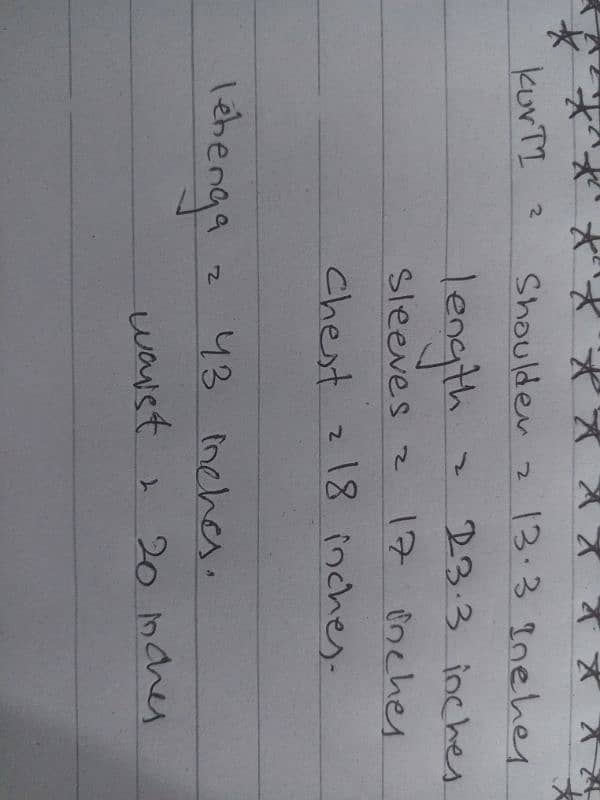 KurTI = Shoulder = 13.3 Inches
length = 23.3 inches
Sleeves = 17 inches
Chest = 18 inches.
lehenga = 43 inches.
waist = 20 inches